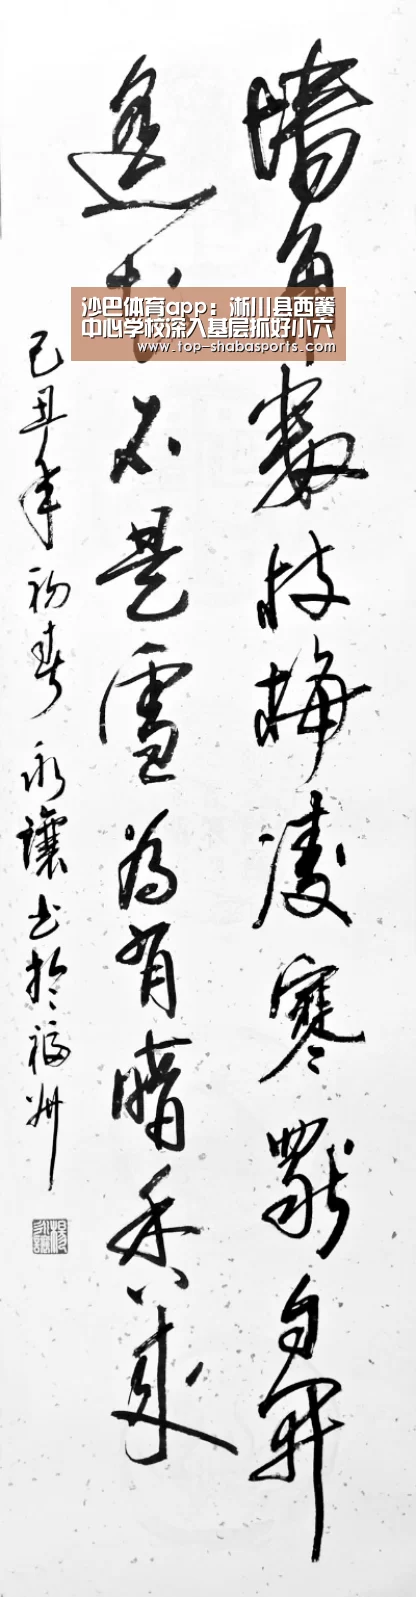 墙角數枝梅凌寒獨自開
遥知不是雪為有暗香來
己丑年初春永讓书於福州
沙巴体育app：淅川县西簧
中心学校深入基层抓好小六
www.top-shabasports.com